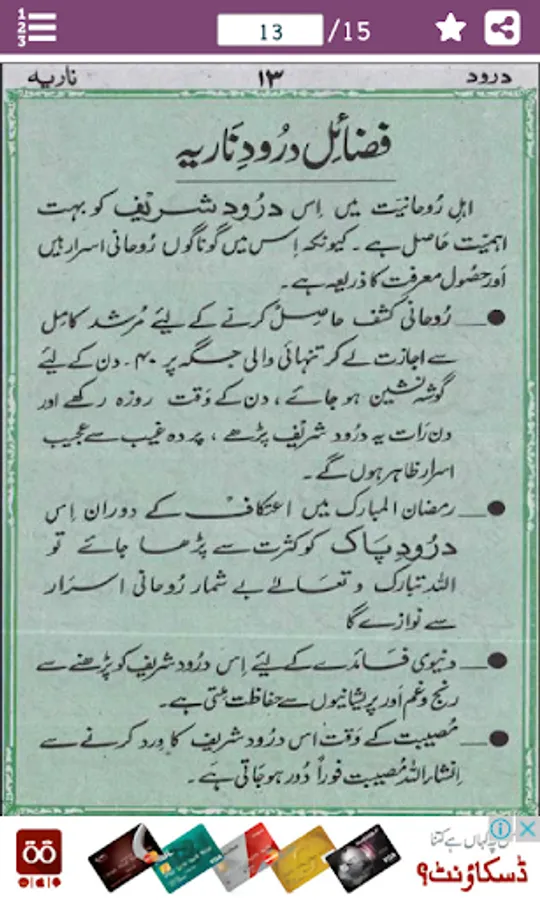 1
2
3
13 /15
درود ۱۳ ناریہ
فضائلِ درُودِ نَاریہ
اہلِ رُوحانیّت میں اِس درُود شریف کو بہت
اہمیّت حَاصل ہے۔ کیونکہ اِس میں گوناگوں رُوحانی اسرار ہیں
اَور حصُولِ معرفت کا ذریعہ ہے۔
رُوحانی کشف حاصِل کرنے کے لیٔے مُرشد کامِل
سے اجازت لے کر تنہائی والی جگہ پر ۴۰۔ دن کے لیٔے
گوشہ نشین ہو جائے، دن کے وَقت روزہ رکھے اور
دن رَات یہ درُود شریف پڑھے، پردہ غیب سے عجیب
اسرار ظاہر ہوں گے۔
رمضان المبارک میں اعتکاف کے دوران اِس
درُودِ پَاک کو کثرت سے پڑھا جائے تو
اللہ تبارک و تعالےٰ بے شمار رُوحانی اسرَار
سے نوازے گا
دنیوی فائدے کے لیٔے اِس درُود شریف کو پڑھنے سے
رنج و غم اَور پریشانیوں سے حفاظت مِلتی ہے۔
مُصیبت کے وَقت اس درُود شریف کا وِرد کرنے سے
اِنشاء اللہ مُصیبت فوراً دُور ہو جَاتی ہَے۔
کہاں ہے کتنا
ڈسکاؤنٹ؟